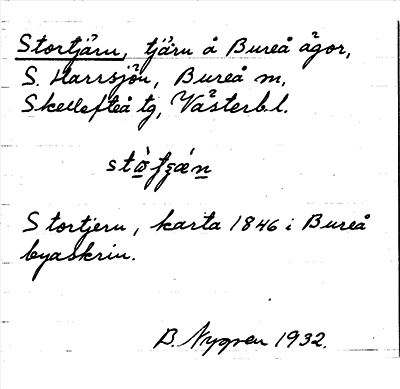 Stortjärn, tjärn å Bureå ägor,
S. Harrsjön, Bureå sn,
Skellefteå tg, Västerb.l.
Stortjern, karta 1846 i Bureå
byaskrin.
B. Nygren 1932.